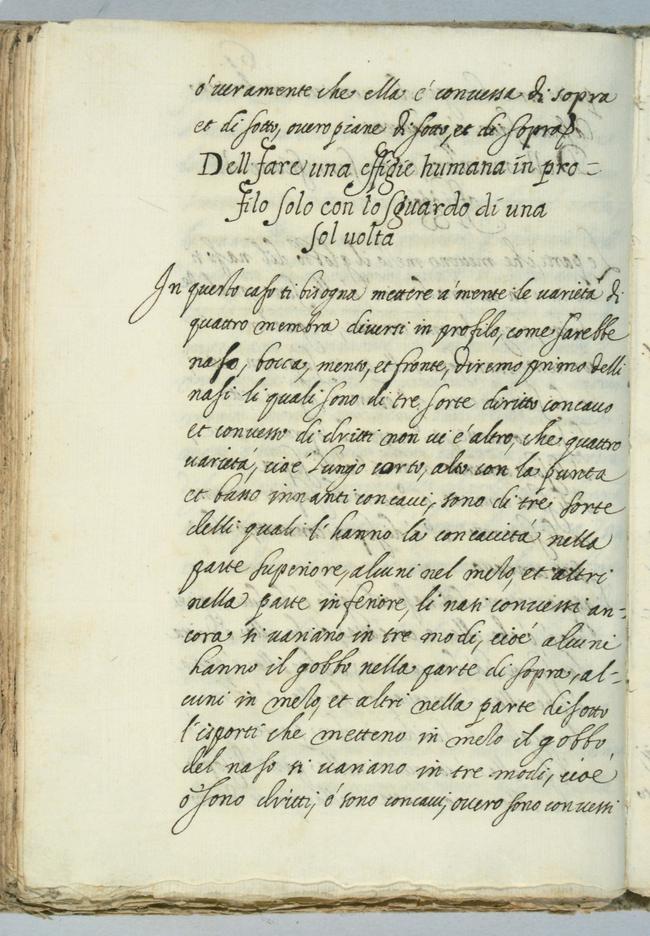 ó veramente che ella é convessa di sopra
et di sotto, overo piane di sotto, et di sopra
Dell fare una effigie humana in pro=
filo solo con lo sguardo di una
sol volta
In questo caso ti bisogna mettere á mente le varietá di
quattro membra diversi in profilo, come sarebbe
naso, bocca, mento, et fronte, diremo primo delli
nasi li quali sono di tre sorte diritto concavo
et convesso di dritti non vi é altro, che quattro
varietá, cioé Lungo corto, alto con la punta
et basso innanti concavi, sono di tre sorte
delli quali l'hanno la concavietá nella
parte superiore, alcuni nel melo, et altri
nella parte inferiore, li nasi convessi an=
cora si variano in tre modi, cioé alcuni
hanno il gobbo nella parte di sopra, al=
cuni in melo, et altri nella parte di sotto
l'isporti che metteno in melo il gobbo
del naso si variano in tre modi, cioé
ó sono dritti, ó sono concavi, overo sono convessi